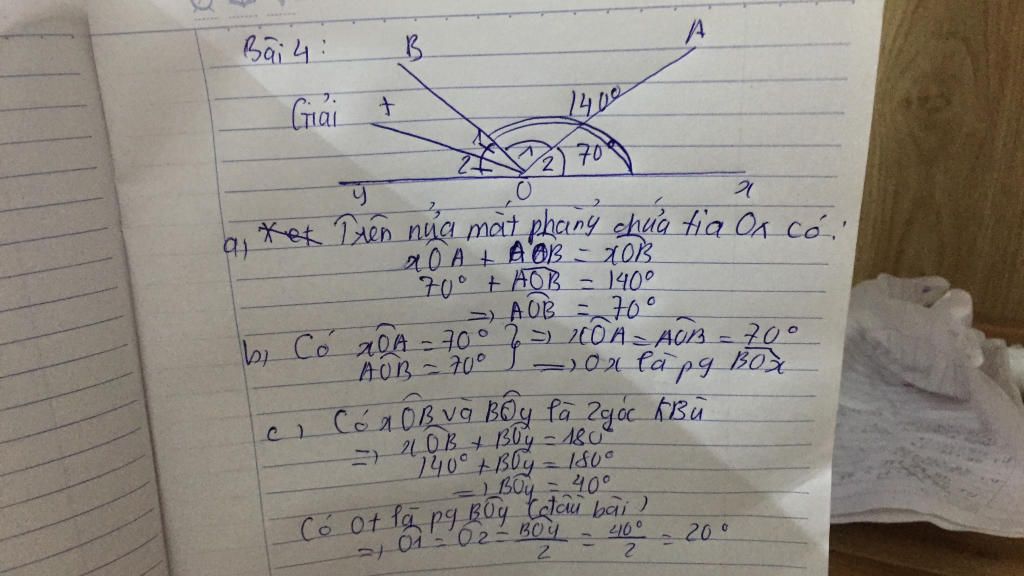 Bài 4:
B
A
Giải
t
140°
1
2
1
2
70°
y
O
x
a, Trên nửa mặt phẳng chứa tia Ox có:
xÔA + AÔB = xÔB
70° + AÔB = 140°
=> AÔB = 70°
b, Có xÔA = 70° } => xÔA = AÔB = 70°
AÔB = 70° => Ox là pg BÔx
c, Có xÔB và BÔy là 2 góc KBù
=> xÔB + BÔy = 180°
140° + BÔy = 180°
=> BÔy = 40°
Có Ot là pg BÔy (đầu bài)
=> Ô1 = Ô2 = BÔy/2 = 40°/2 = 20°